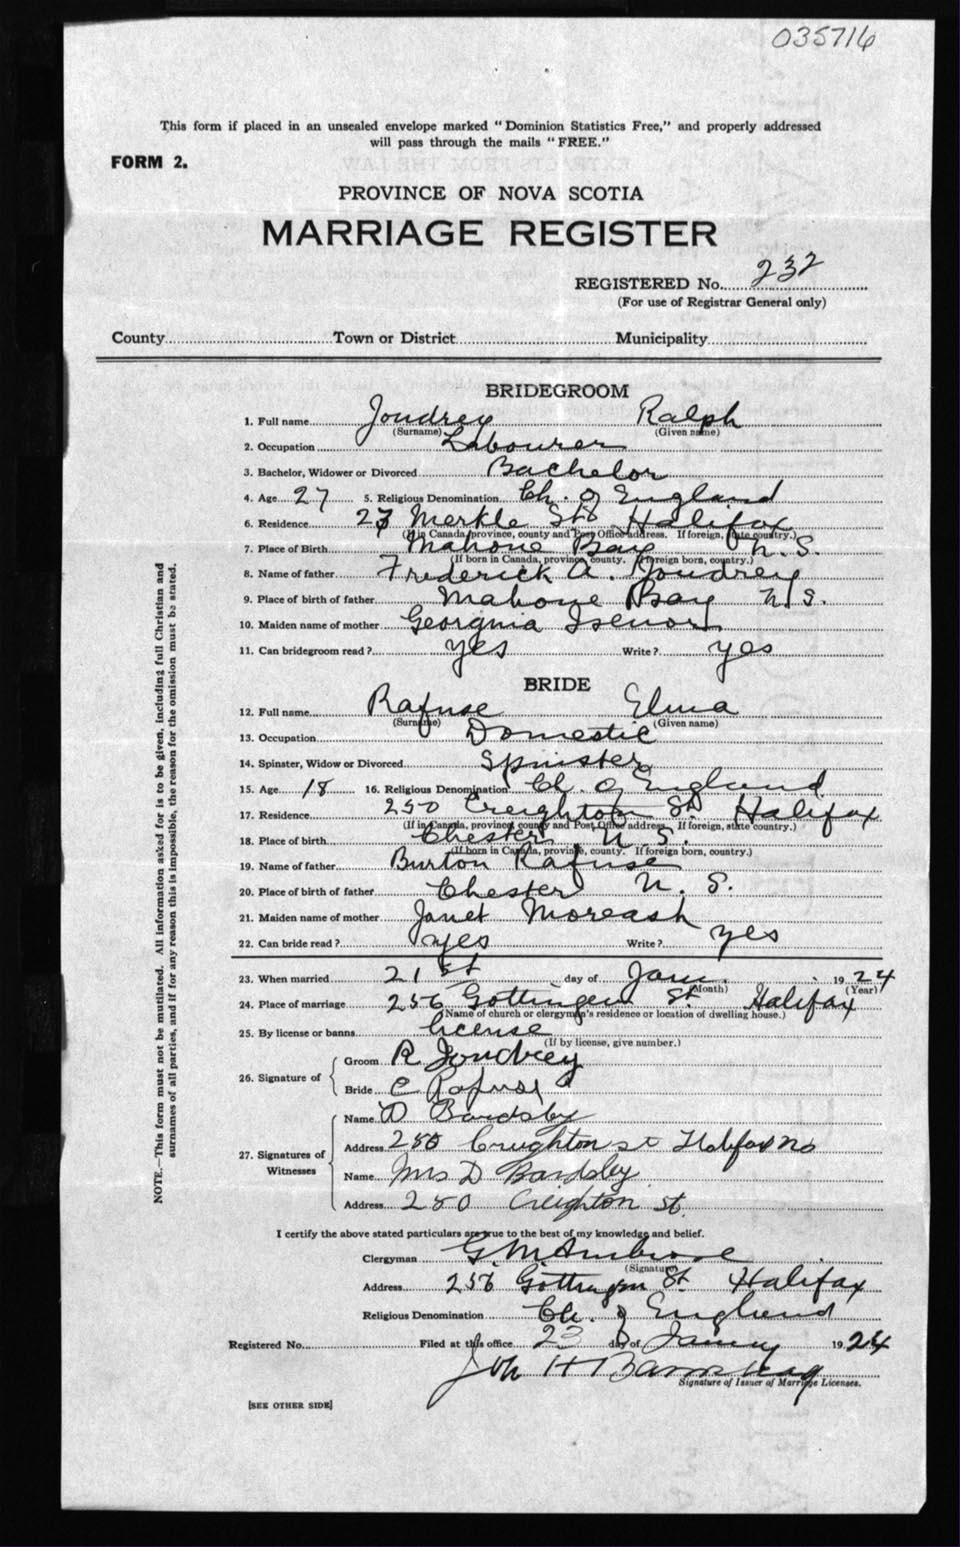 035716
This form if placed in an unsealed envelope marked "Dominion Statistics Free," and properly addressed
will pass through the mails "FREE."
FORM 2.
PROVINCE OF NOVA SCOTIA
MARRIAGE REGISTER
REGISTERED No. 232
(For use of Registrar General only)
County Town or District Municipality
BRIDEGROOM
1. Full name Joudrey Ralph
(Surname) (Given name)
2. Occupation Labourer
3. Bachelor, Widower or Divorced Bachelor
4. Age 27 5. Religious Denomination Ch. of England
6. Residence 27 Merkle St Halifax
(If in Canada, province, county and Post Office address. If foreign, state country.)
7. Place of Birth Mahone Bay N.S.
(If born in Canada, province, county. If foreign born, country.)
8. Name of father Frederick A. Joudrey
9. Place of birth of father Mahone Bay N.S.
10. Maiden name of mother Georgnia Isenor
11. Can bridegroom read? yes Write? yes
BRIDE
12. Full name Rafuse Elma
(Surname) (Given name)
13. Occupation Domestic
14. Spinster, Widow or Divorced Spinster
15. Age 18 16. Religious Denomination Ch. of England
17. Residence 250 Creighton St Halifax
(If in Canada, province, county and Post Office address. If foreign, state country.)
18. Place of birth Chester N.S.
(If born in Canada, province, county. If foreign born, country.)
19. Name of father Burton Rafuse
20. Place of birth of father Chester N.S.
21. Maiden name of mother Janet Moreash
22. Can bride read? yes Write? yes
23. When married 21st day of Jany. 1924
(Month) (Year)
24. Place of marriage 256 Gottingen St Halifax
(Name of church or clergyman's residence or location of dwelling house.)
25. By license or banns license
(If by license, give number.)
26. Signature of
Groom R Joudrey
Bride E Rafuse
27. Signatures of Witnesses
Name D Bardsley
Address 250 Creighton St Halifax NS
Name Mrs D Bardsley
Address 250 Creighton St.
I certify the above stated particulars are true to the best of my knowledge and belief.
Clergyman G. M. Ambrose
(Signature)
Address 256 Gottingen St Halifax
Religious Denomination Ch. of England
Registered No. Filed at this office 23 day of Jany 1924
Joh H
Signature of Issuer of Marriage Licenses.
[SEE OTHER SIDE]
NOTE.—This form must not be mutilated. All information asked for is to be given, including full Christian and
surnames of all parties, and if for any reason this is impossible, the reason for the omission must be stated.